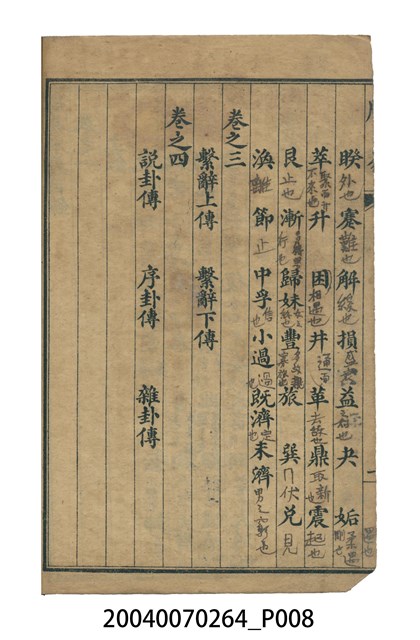 睽外也蹇難也解緩也損益夬姤
萃聚升不來也困相遇也井通革去故也鼎取新也震起也
艮止也漸歸妹豐旅巽伏兌見
渙離節止中孚信也小過過也既濟定也未濟男之窮也
卷之三
繫辭上傳 繫辭下傳
卷之四
說卦傳 序卦傳 雜卦傳
20040070264_P008